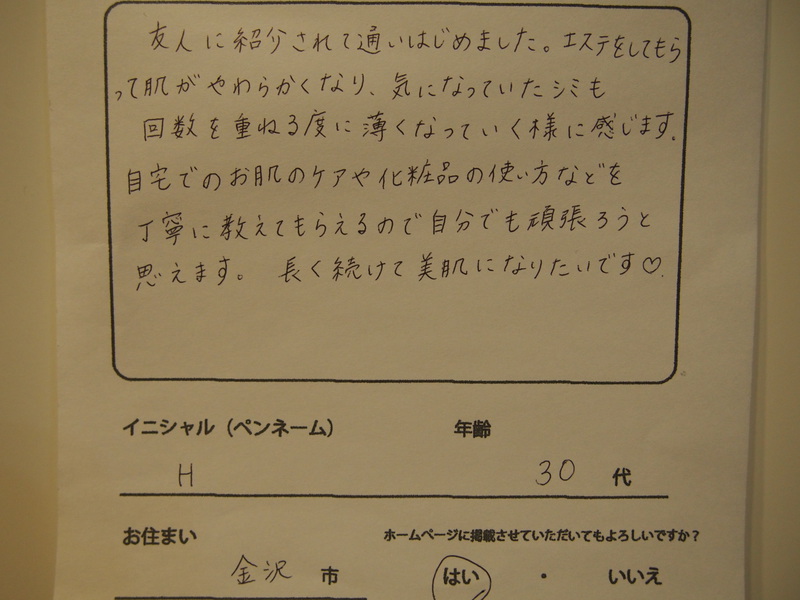 友人に紹介されて通いはじめました。エステをしてもら
って肌がやわらかくなり、気になっていたシミも
回数を重ねる度に薄くなっていく様に感じます。
自宅でのお肌のケアや化粧品の使い方などを
丁寧に教えてもらえるので自分でも頑張ろうと
思えます。 長く続けて美肌になりたいです♡.
イニシャル（ペンネーム） 年齢
H 30 代
お住まい ホームページに掲載させていただいてもよろしいですか？
金沢 市 はい ・ いいえ